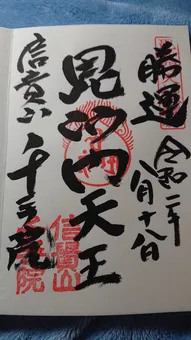 勝運
令和二年
八月十八日
毘沙門天王
信貴山
千手院
信貴山
千手院